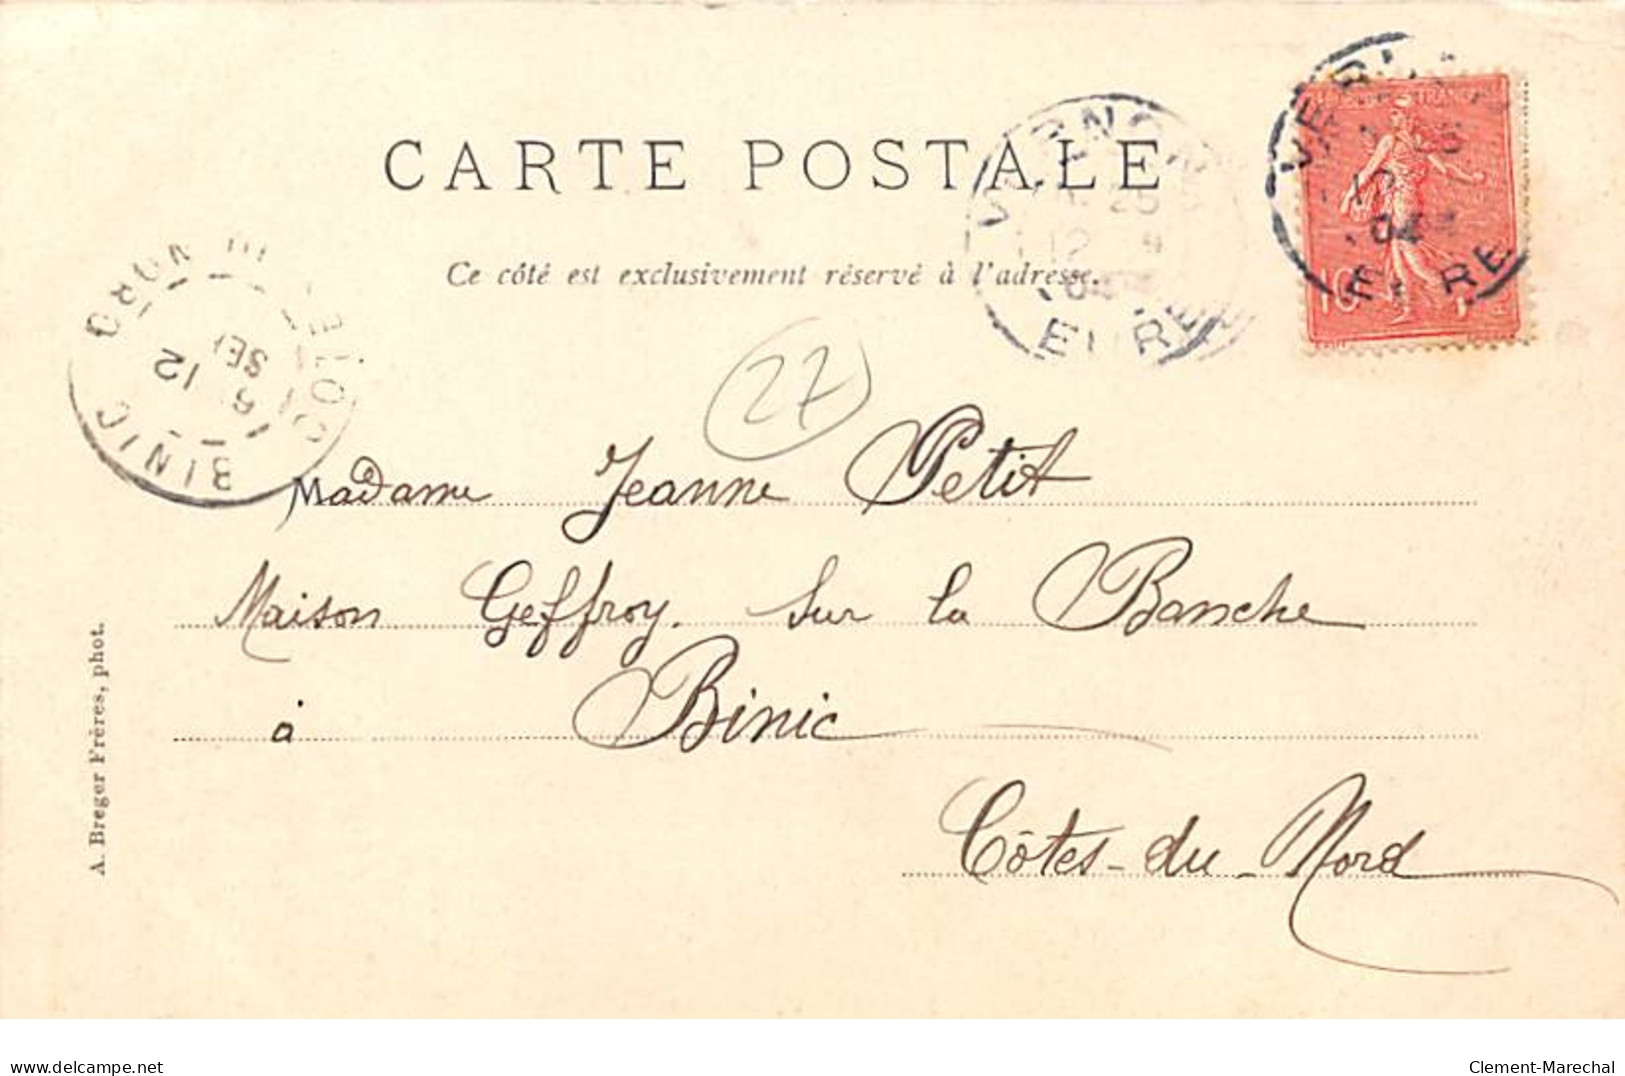 CARTE POSTALE
Ce côté est exclusivement réservé à l'adresse.
EURE
04
10
BINIC
12
27
Madame Jeanne Petit
Maison Geffroy. Sur la Banche
à Binic
Côtes-du-Nord
A. Breger Frères, phot.
delcampe.net
Clement-Marechal